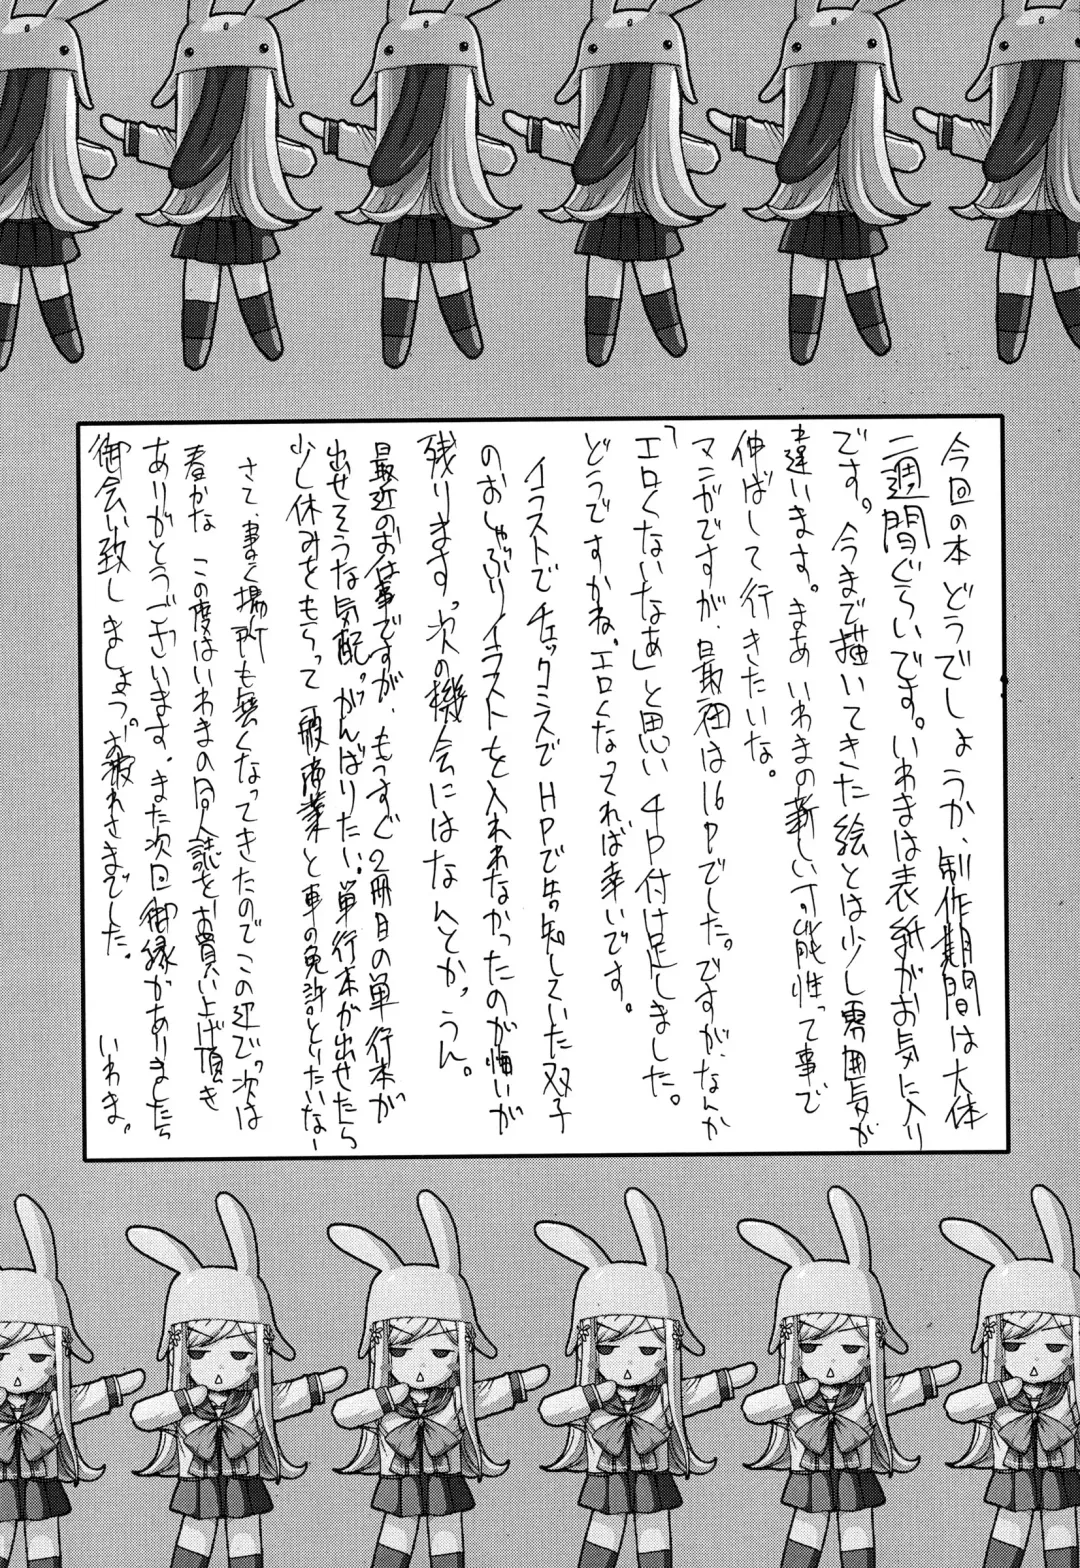 今回の本どうでしょうか、制作期間は大体
二週間ぐらいです。いわまは表紙がお気に入り
です。今まで描いてきた絵とは少し雰囲気が
違います。まあいわまの新しい可能性って事で
伸ばして行きたいな。
マンガですが、最初は16Pでした。ですが、なんか
「エロくないなぁ」と思い4P付け足しました。
どうですかね。エロくなってれば幸いです。
イラストでチェックミスでHPで告知していた双子
のおしゃぶりイラストを入れれなかったのが悔いが
残ります。次の機会にはなんとか。うん。
最近のお仕事ですが、もうすぐ2冊目の単行本が
出せそうな気配。がんばりたい。単行本が出せたら
少し休みをもらって一般商業と車の免許とりたいなー
さて、書く場所も無くなってきたのでこの辺で。次は
春かな この度はいわまの同人誌をお買い上げ頂き
ありがとうございます。また次回御縁がありましたら
御会い致しましょう。お疲れさまでした。
いわま。